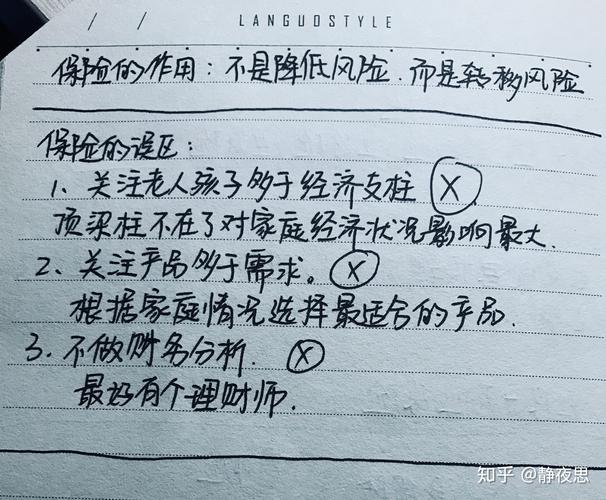 / / LANGUOSTYLE
保险的作用：不是降低风险.而是转移风险
保险的误区：
1、关注老人孩子多于经济支柱 Ⓧ.
顶梁柱不在了对家庭经济状况影响最大.
2、关注产品多于需求。Ⓧ
根据家庭情况选择最适合的产品.
3、不做财务分析. Ⓧ
最好有个理财师.
知乎 @静夜思